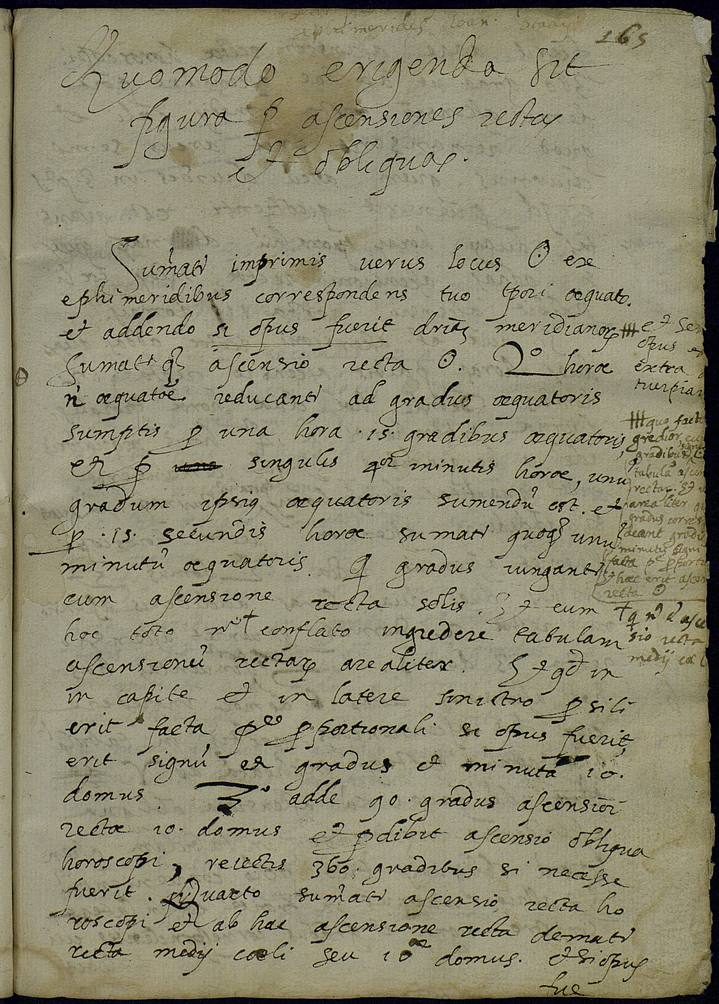 165
Quomodo erigenda sit
figura p ascensiones rectas
et obliquas.
Sumatr imprimis verus locus ☉ ex
ephimeridibus correspondens tuo tpori æquato.
et addendo si opus fuerit driã meridianorz
sumatr qz ascensio recta ☉. 2o horæ
æquatæ reducantr ad gradus æquatoris
sumptis p una hora .15. gradibus æquatoris,
et p singulis qor minutis horæ, unu
gradum ipsiq æquatoris sumendũ est. et
p .15. secundis horæ sumatr quoqz unũ
minutũ æquatoris. qi gradus iungantr
cum ascensione recta solis. Et cum
hoc toto nro + conflato ingredere tabulam
ascensionũ rectarz arealiter. Et qd in
in capite et in latere sinistro p sili
erit facta pte pportionali si opus fuerit,
erit signũ et gradus et minuta 10.
domus. 3o adde 90. gradus ascensioi
rectæ 10. domus et pdibit ascensio obliqua
horoscopi, reiectis 360. gradibus si necesse
fuerit. Quarto sumatr ascensio recta ho
roscopi et ab hac ascensione recta dematr
recta medij cœli seu 10æ domus. et si opus
fue
et se
opus
extra
qua fact
gredior
gradibus
tabulã
recta
arealiter
gradus corres
deant gradu
minutis signi
facta p pportio
et hac erit ascen
recta ☉
+ qi nrs ẽ asce
sio recta
medij cœl